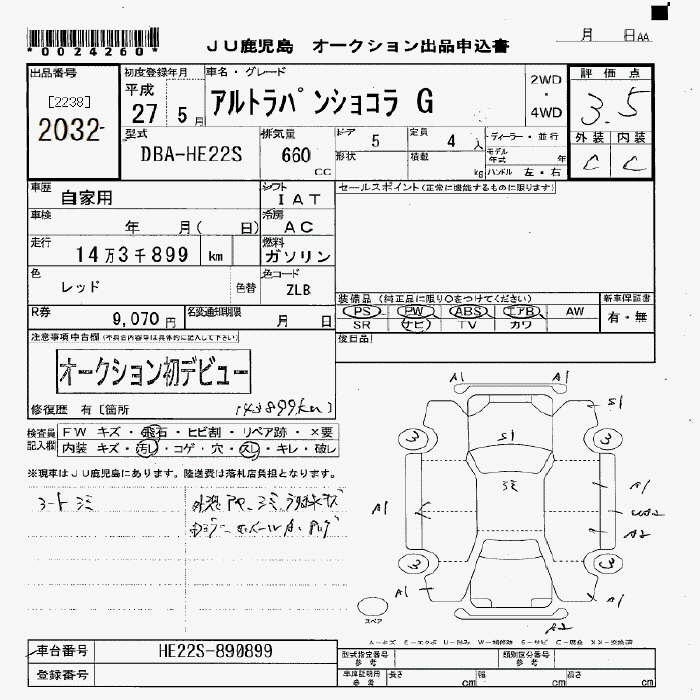 *0024260*
JU鹿児島 オークション出品申込書
月 日AA
出品番号 初度登録年月 車名・グレード 2WD・4WD 評価点
[2238]
2032-
平成 27 5月 アルトラパンショコラ G 3.5
型式 排気量 ドア 5 定員 4 人 ディーラー・並行 外装 内装
DBA-HE22S 660 CC 形状 積載 kg モデル年式 年 ハンドル 左・右 C C
車歴 自家用 シフト IAT セールスポイント(正常に機能するものに限ります)
車検 年 月( 日) 冷房 AC
走行 14万3千899 km 燃料 ガソリン
色 レッド 色替 色コード ZLB
装備品(純正品に限り○をつけてください) 新車保証書
R券 9,070円 名変通知期限 月 日
PS PW ABS エアB AW 有・無
SR ナビ TV カワ
注意事項申告欄(不具合内容等は具体的に記入して下さい) 後日品
オークション初デビュー
修復歴 有〔箇所 143899km〕
検査員記入欄 FW キズ・飛石・ヒビ割・リペア跡・×要
内装 キズ・汚レ・コゲ・穴・スレ・キレ・破レ
※現車はJU鹿児島にあります。陸送費は落札店負担となります。
A1 A1
S1 S1
3 3
シミ
A1 A1
A2
3 3
A1 A1
スペア
A2
車台番号 HE22S-890899 型式指定番号 参考 類別区分番号 参考
登録番号 車庫証明用 参考 長さ cm 幅 cm 高さ cm